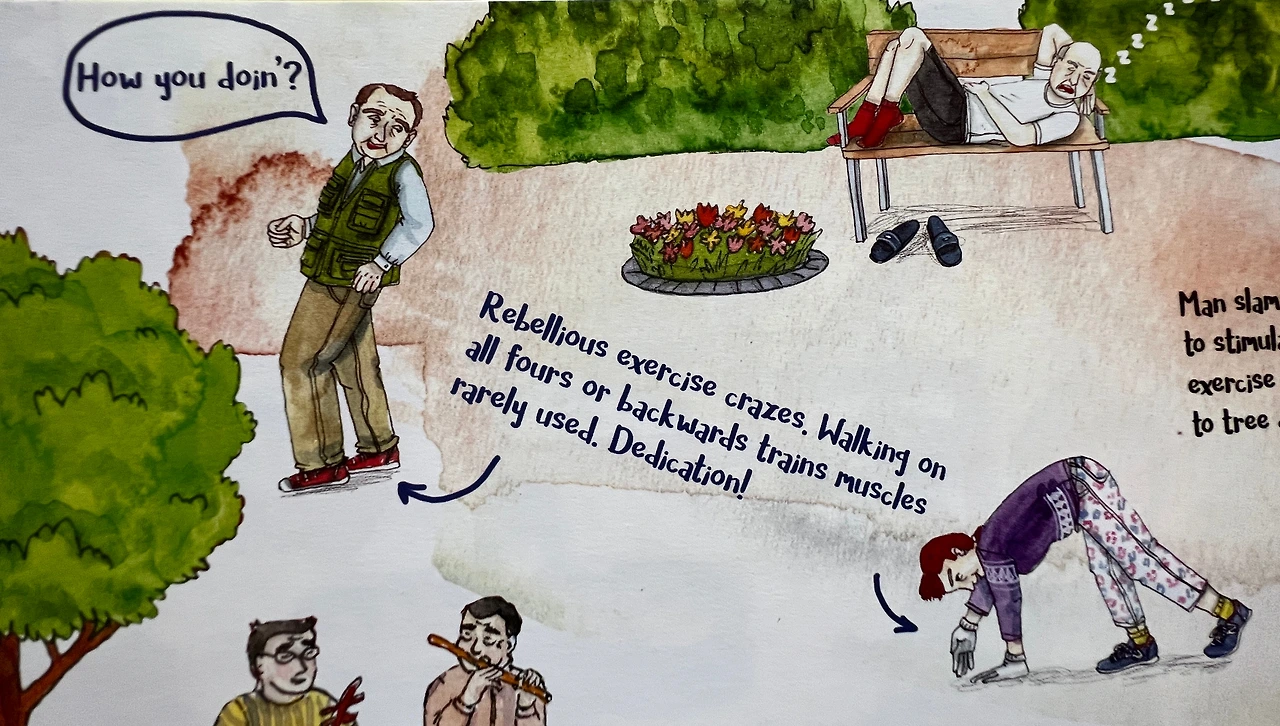 How you doin'?
z z z z z z z
Rebellious exercise crazes. Walking on
all fours or backwards trains muscles
rarely used. Dedication!
Man slam
to stimul
exercise
to tree